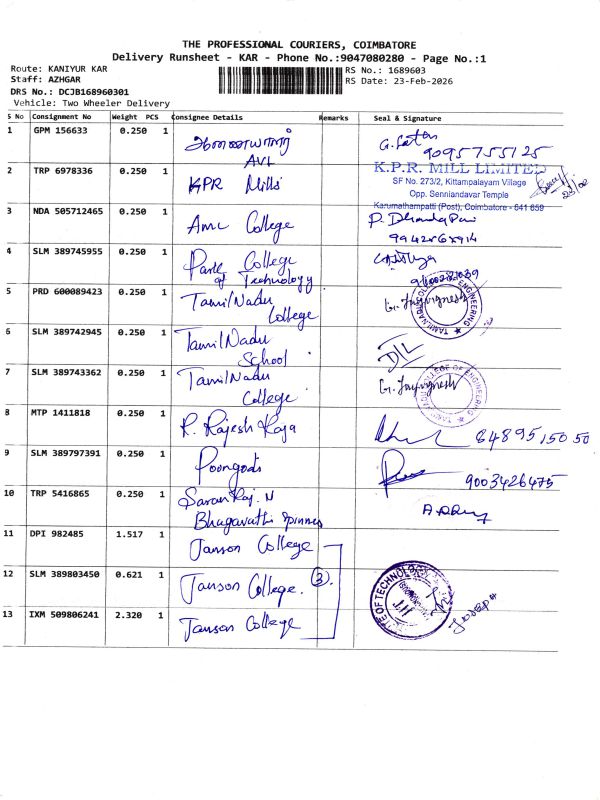 THE PROFESSIONAL COURIERS, COIMBATORE
Delivery Runsheet - KAR - Phone No.:9047080280 - Page No.:1
Route: KANIYUR KAR
RS No.: 1689603
Staff: AZHGAR
RS Date: 23-Feb-2026
DRS No.: DCJB168960301
Vehicle: Two Wheeler Delivery
S No Consignment No Weight PCS Consignee Details Remarks Seal & Signature
1 GPM 156633 0.250 1 AVL 9095755125
2 TRP 6978336 0.250 1 KPR Mills
K.P.R. MILL LIMITED
SF No. 273/2, Kittampalayam Village
Opp. Senniandavar Temple
Karumathampatti (Post), Coimbatore - 641 659
3 NDA 505712465 0.250 1 Amc College
4 SLM 389745955 0.250 1 Park College
of Technology
5 PRD 600089423 0.250 1 Tamil Nadu
College G. Jayvignesh
6 SLM 389742945 0.250 1 Tamil Nadu
School
7 SLM 389743362 0.250 1 Tamil Nadu
College G. Jayvignesh
8 MTP 1411818 0.250 1 R. Rajesh Raja
9 SLM 389797391 0.250 1 Poongodi 9003426475
10 TRP 5416865 0.250 1 Saran Raj. N
Bhagavathi Spinners
11 DPI 982485 1.517 1 Janson College
12 SLM 389803450 0.621 1 Janson College. (3).
13 IXM 509806241 2.320 1 Janson College